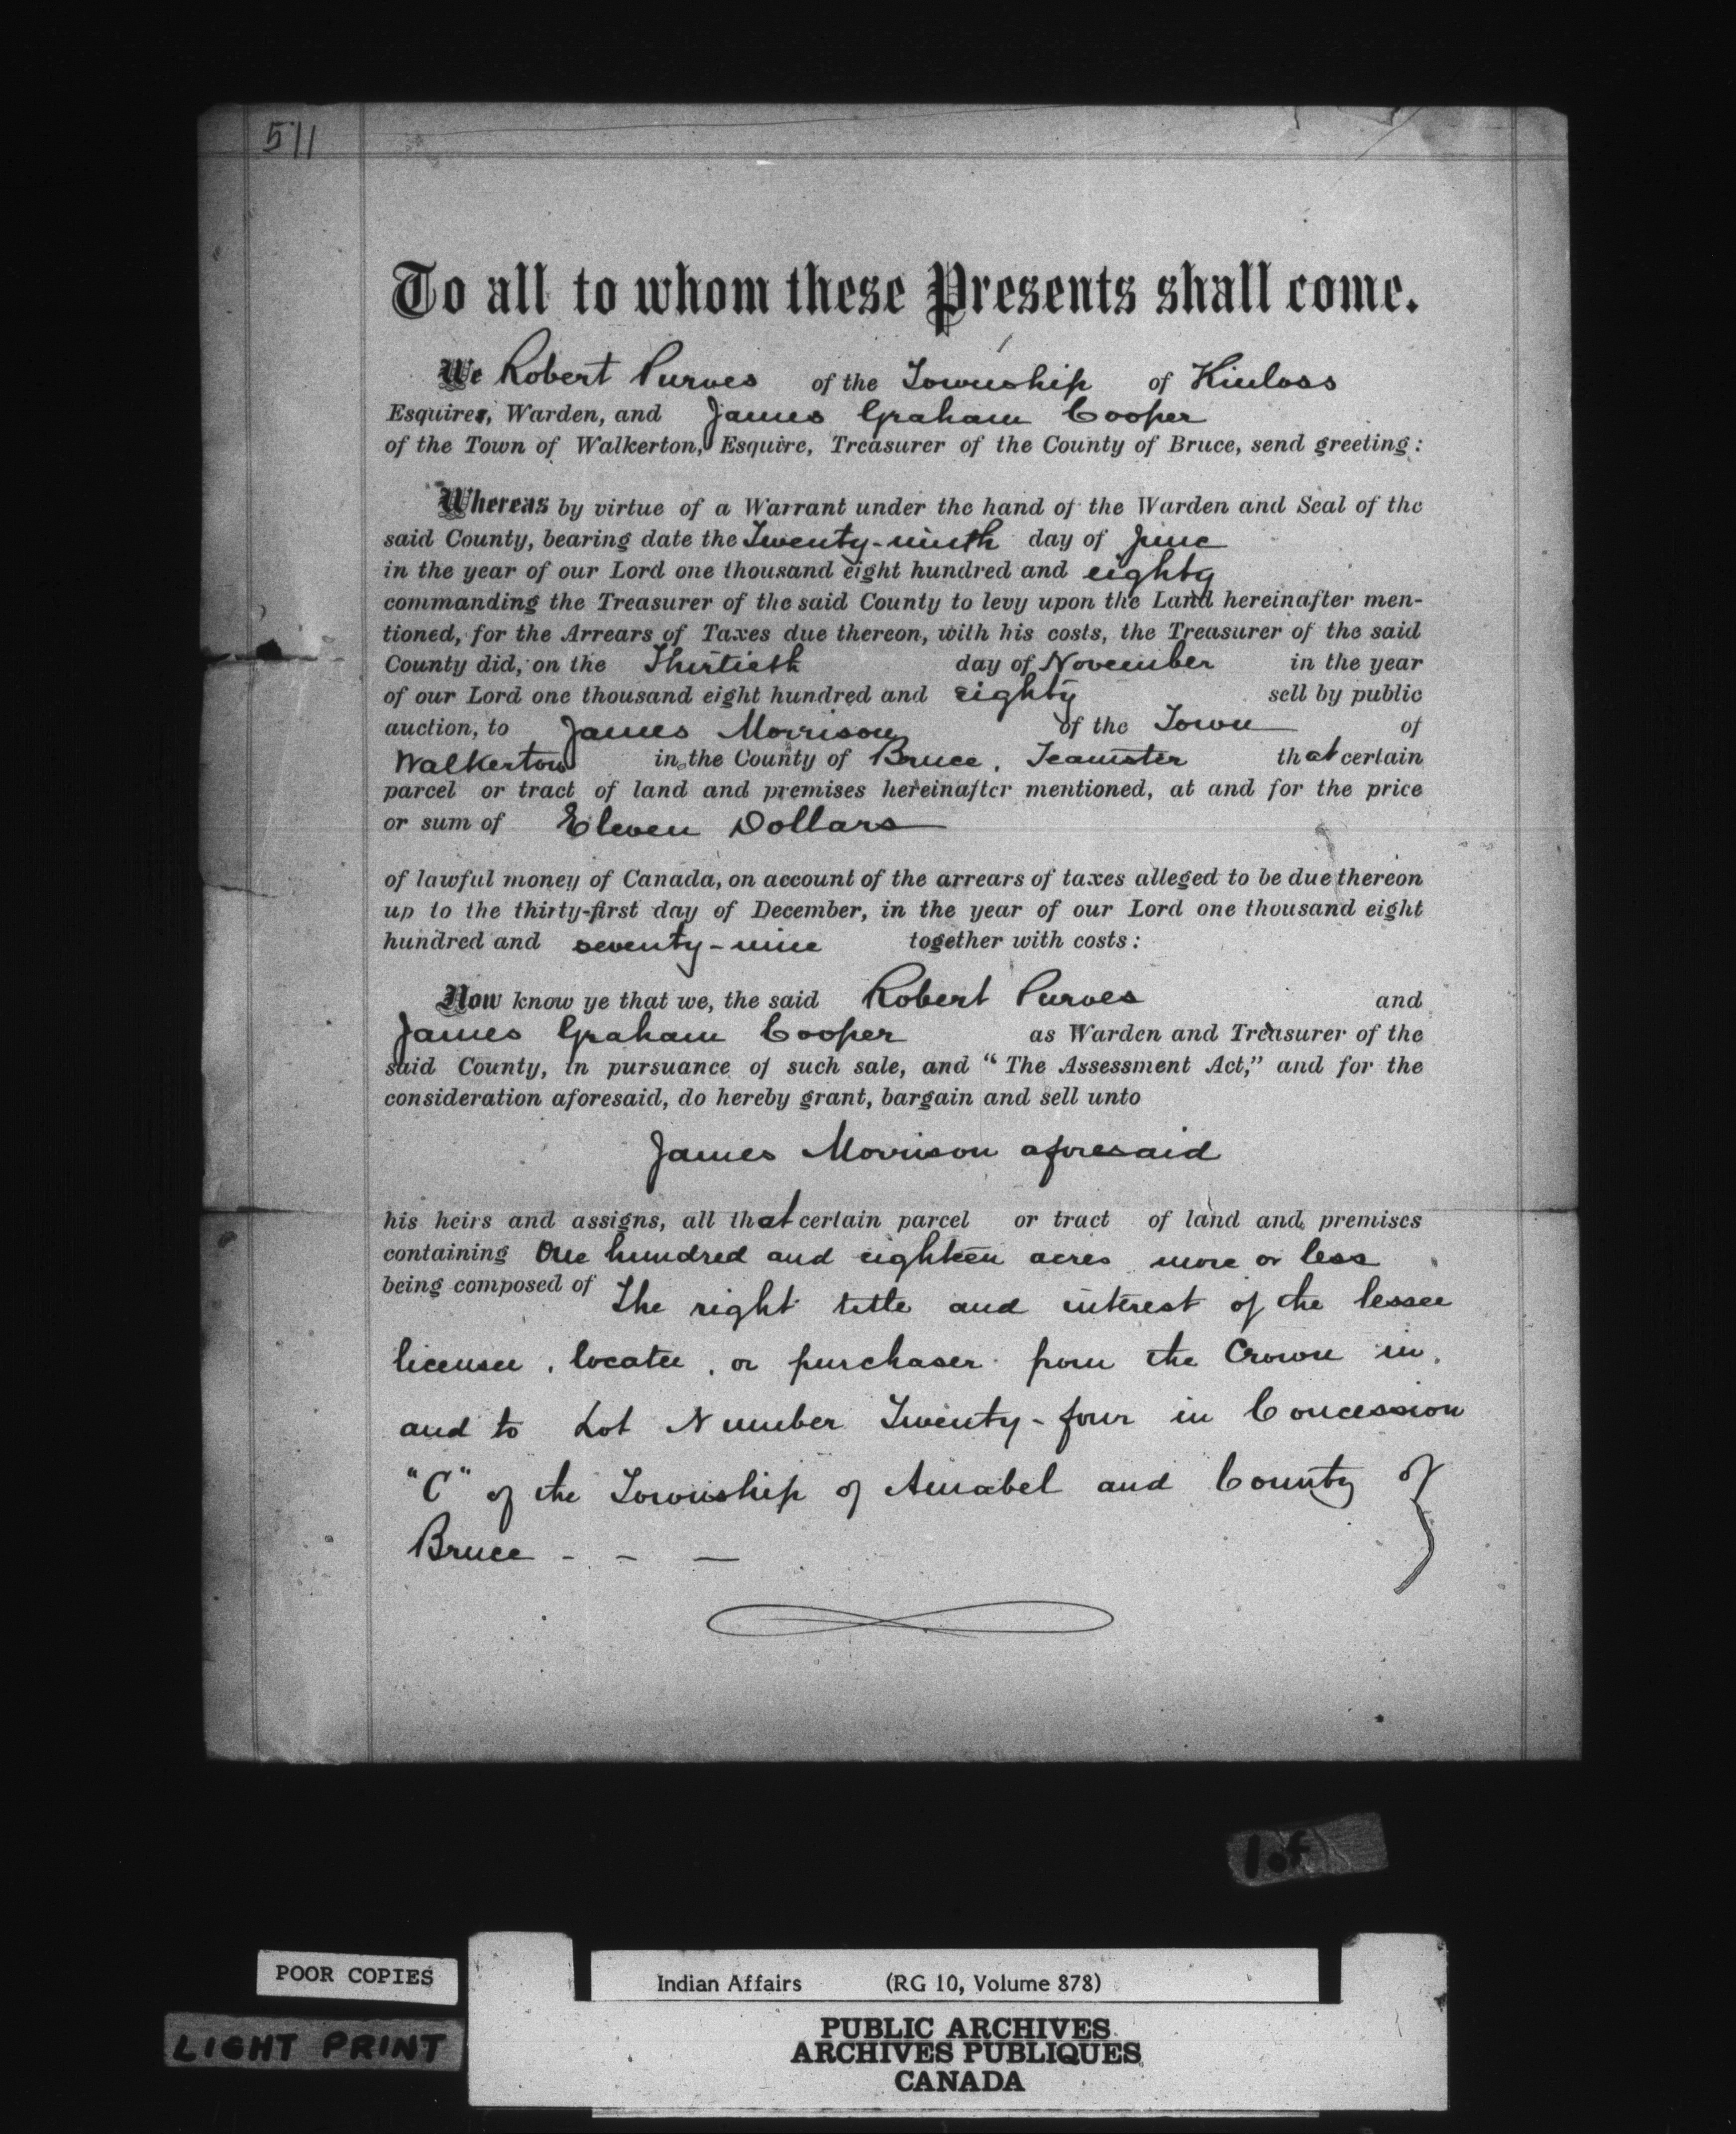 511
To all to whom these Presents shall come.
We Robert Purves of the Township of Kinloss
Esquires, Warden, and James Graham Cooper
of the Town of Walkerton, Esquire, Treasurer of the County of Bruce, send greeting:
Whereas by virtue of a Warrant under the hand of the Warden and Seal of the
said County, bearing date the Twenty-ninth day of June
in the year of our Lord one thousand eight hundred and eighty
commanding the Treasurer of the said County to levy upon the Land hereinafter men-
tioned, for the Arrears of Taxes due thereon, with his costs, the Treasurer of the said
County did, on the Thirtieth day of November in the year
of our Lord one thousand eight hundred and eighty sell by public
auction, to James Morrison of the Town of
Walkerton in the County of Bruce, Teamster that certain
parcel or tract of land and premises hereinafter mentioned, at and for the price
or sum of Eleven Dollars
of lawful money of Canada, on account of the arrears of taxes alleged to be due thereon
up to the thirty-first day of December, in the year of our Lord one thousand eight
hundred and seventy-nine together with costs:
Now know ye that we, the said Robert Purves and
James Graham Cooper as Warden and Treasurer of the
said County, in pursuance of such sale, and "The Assessment Act," and for the
consideration aforesaid, do hereby grant, bargain and sell unto
James Morrison aforesaid
his heirs and assigns, all that certain parcel or tract of land and premises
containing One hundred and eighteen acres more or less
being composed of The right title and interest of the lessee
licensee, locatee, or purchaser from the Crown in,
and to Lot Number Twenty-four in Concession
"C" of the Township of Amabel and County of
Bruce - - -
1 of
POOR COPIES
LIGHT PRINT
Indian Affairs (RG 10, Volume 878)
PUBLIC ARCHIVES
ARCHIVES PUBLIQUES
CANADA